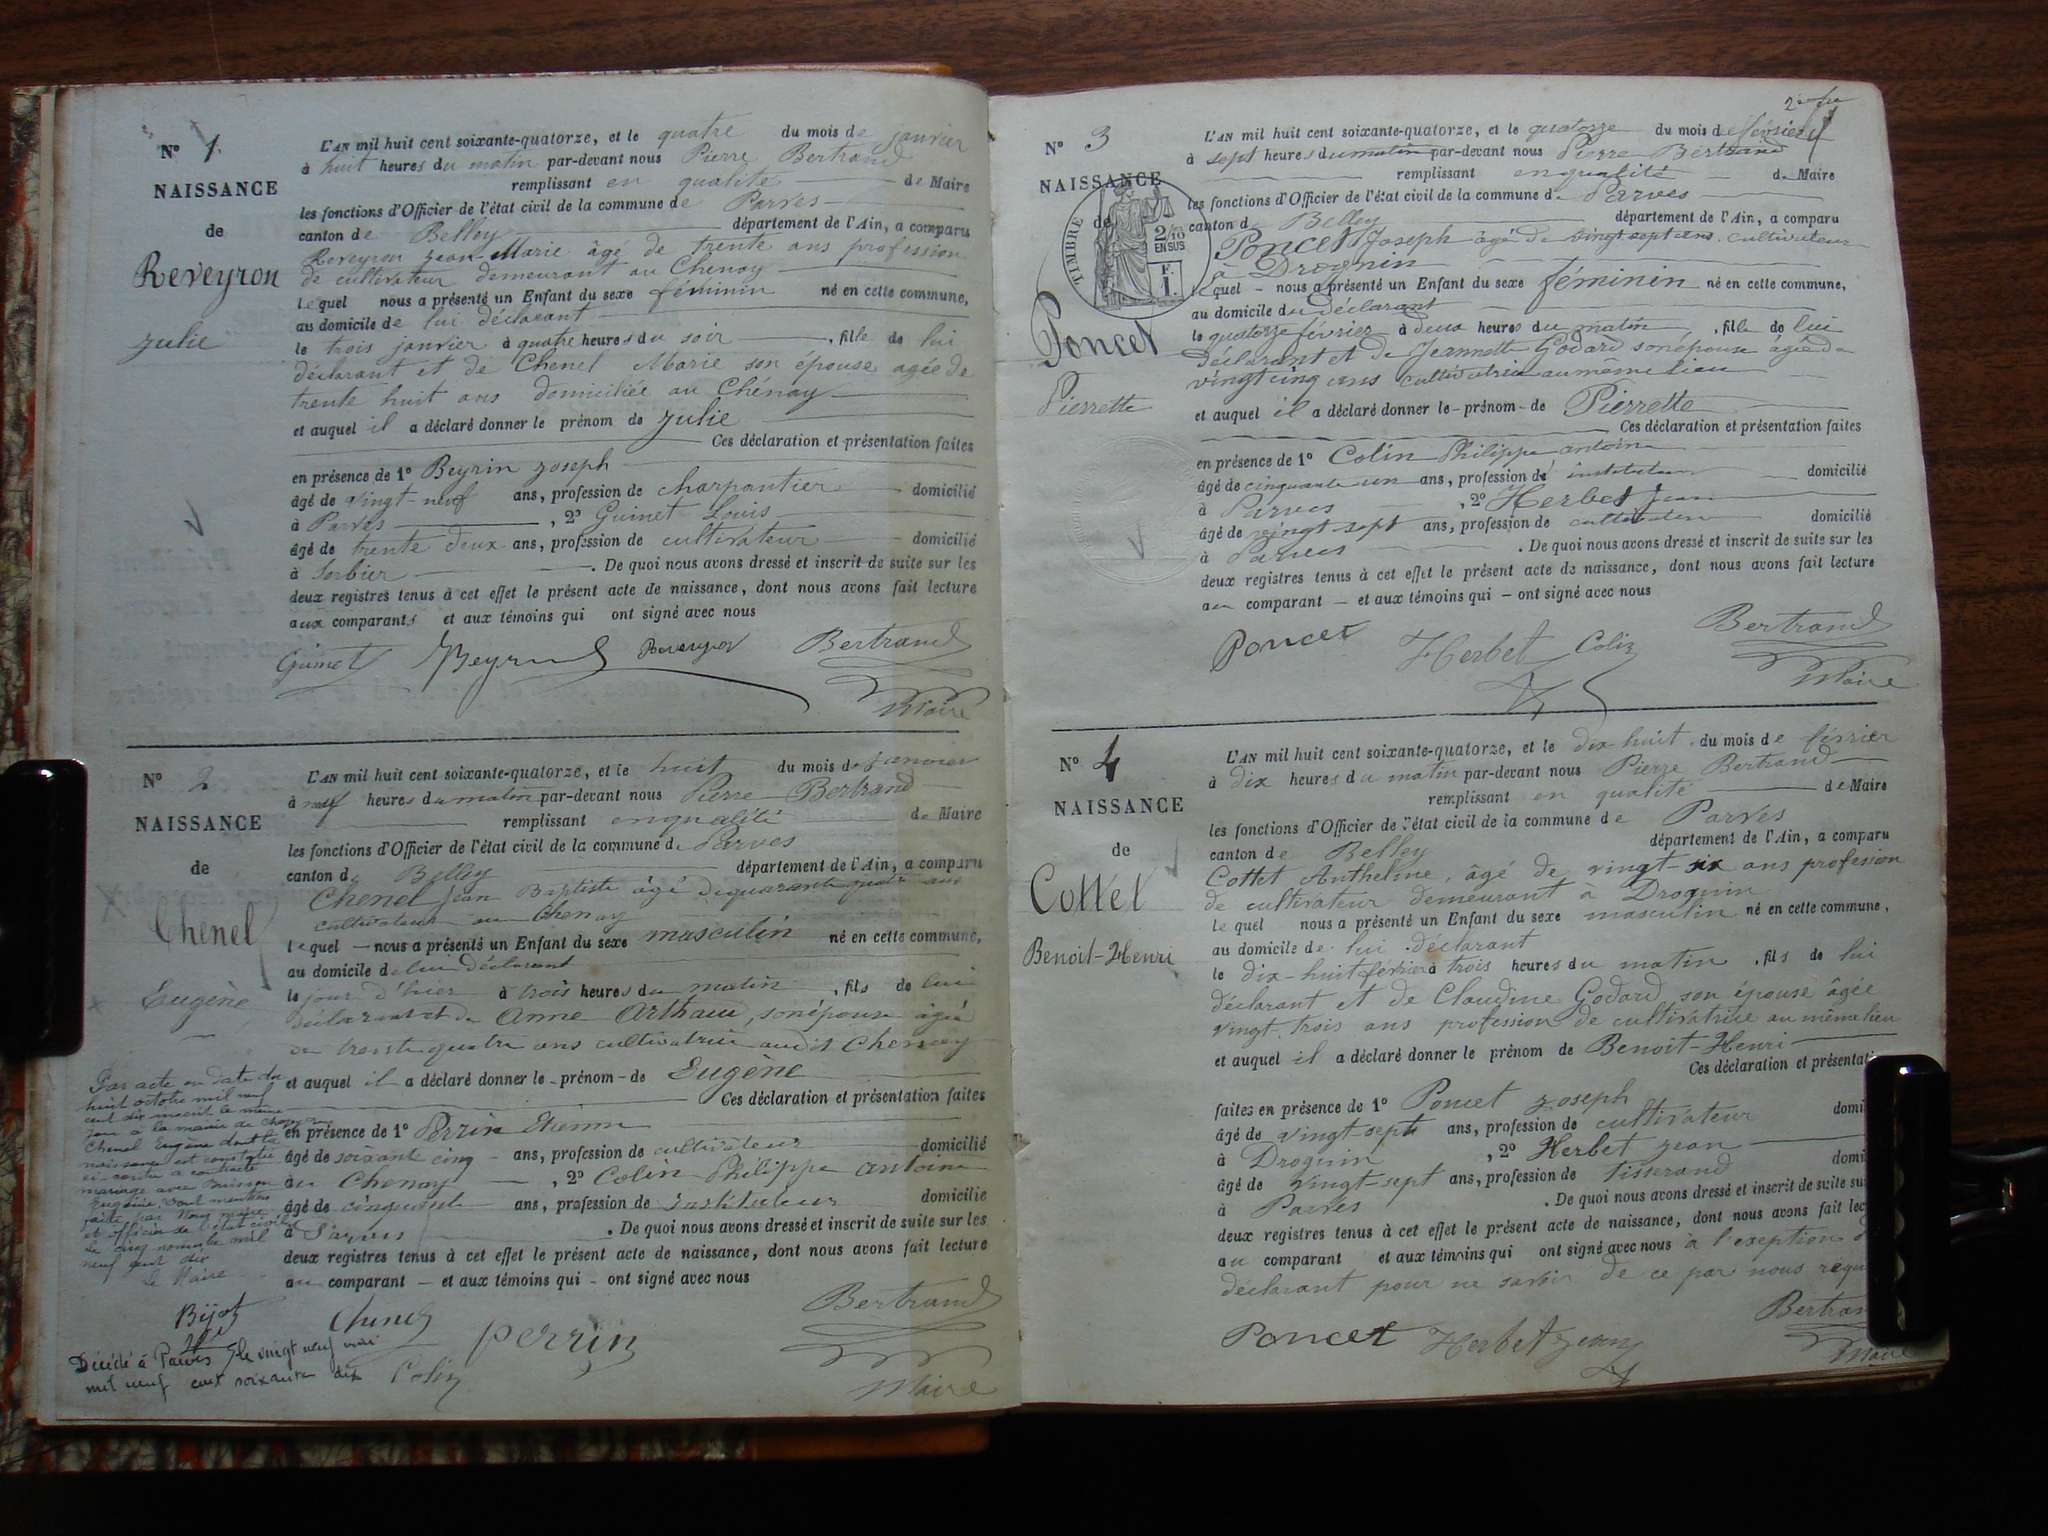 N° 1.
NAISSANCE
de
Reveyron
Julie
L'AN mil huit cent soixante-quatorze, et le quatre du mois de janvier
à huit heures du matin par-devant nous Pierre Bertrand
remplissant en qualité de Maire
les fonctions d'Officier de l'état civil de la commune de Parves
canton de Belley département de l'Ain, a comparu
Reveyron Jean-Marie âgé de trente ans profession
de cultivateur demeurant au Chenay
lequel nous a présenté un Enfant du sexe féminin né en cette commune,
au domicile de lui déclarant
le trois janvier à quatre heures du soir, fille de lui
déclarant et de Chenel Marie son épouse agée de
trente huit ans domiciliée au Chénay
et auquel il a déclaré donner le prénom de Julie
Ces déclaration et présentation faites
en présence de 1° Beyrin Joseph
âgé de vingt-neuf ans, profession de charpantier domicilié
à Parves, 2° Guinet Louis
âgé de trente deux ans, profession de cultivateur domicilié
à Sorbier. De quoi nous avons dressé et inscrit de suite sur les
deux registres tenus à cet effet le présent acte de naissance, dont nous avons fait lecture
aux comparants et aux témoins qui ont signé avec nous
Guinet Beyrin Reveyron Bertrand
Maire
N° 2
NAISSANCE
de
Chenel
Eugène
L'AN mil huit cent soixante-quatorze, et le huit du mois de Janvier
à neuf heures du matin par-devant nous Pierre Bertrand
remplissant en qualité de Maire
les fonctions d'Officier de l'état civil de la commune de Parves
canton de Belley département de l'Ain, a comparu
Chenel Jean Baptiste âgé de quarante quatre ans
cultivateur au Chenay
lequel — nous a présenté un Enfant du sexe masculin né en cette commune,
au domicile de lui déclarant
le jour d'hier à trois heures du matin, fils de lui
déclarant et de Anne Arthaud, son épouse âgée
de trente quatre ans cultivatrice audit Chenay
et auquel il a déclaré donner le - prénom - de Eugène
Ces déclaration et présentation faites
en présence de 1° Perrin Etienne
âgé de soixante cinq - ans, profession de cultivateur domicilié
au Chenay, 2° Colin Philippe antoine
âgé de cinquante ans, profession de Instituteur domicilié
à Parves. De quoi nous avons dressé et inscrit de suite sur les
deux registres tenus à cet effet le présent acte de naissance, dont nous avons fait lecture
au comparant — et aux témoins qui - ont signé avec nous
Chenel Perrin Colin Bertrand
Maire
Par acte en date du
huit octobre mil neuf
cent dix inscrit le même
jour à la mairie de
Chenel Eugène dont la
naissance est constatée
ci-contre a contracté
mariage avec Buisson
Eugénie. Dont mention
faite par Nous maire
et officier de l'état civil
le cinq novembre mil
neuf cent dix
Le Maire
Décédé à Parves le vingt neuf mai
mil neuf cent soixante dix
N° 3
NAISSANCE
de
TIMBRE
2/10
EN SUS
F.
1.
Poncet
Pierrette
L'AN mil huit cent soixante-quatorze, et le quatorze du mois de février
à sept heures du matin par-devant nous Pierre Bertrand
remplissant en qualité de Maire
les fonctions d'Officier de l'état civil de la commune de Parves
canton de Belley département de l'Ain, a comparu
Poncet Joseph âgé de vingt sept ans cultivateur
à Drognin
lequel - nous a présenté un Enfant du sexe féminin né en cette commune,
au domicile du déclarant
le quatorze février à deux heures du matin, fille de lui
déclarant et de Jeannette Godard son épouse âgée de
vingt cinq ans cultivatrice au même lieu
et auquel il a déclaré donner le - prénom - de Pierrette
Ces déclaration et présentation faites
en présence de 1° Colin Philippe antoine
âgé de cinquante un ans, profession de instituteur domicilié
à Parves, 2° Herbet Jean
âgé de vingt sept ans, profession de cultivateur domicilié
à Parves. De quoi nous avons dressé et inscrit de suite sur les
deux registres tenus à cet effet le présent acte de naissance, dont nous avons fait lecture
au comparant — et aux témoins qui — ont signé avec nous
Poncet Herbet Colin Bertrand
Maire
N° 4
NAISSANCE
de
Cottet
Benoit-Henri
L'AN mil huit cent soixante-quatorze, et le dix huit du mois de février
à dix heures du matin par-devant nous Pierre Bertrand
remplissant en qualité de Maire
les fonctions d'Officier de l'état civil de la commune de Parves
canton de Belley département de l'Ain, a comparu
Cottet Anthelme, âgé de vingt-six ans profession
de cultivateur demeurant à Drognin
lequel nous a présenté un Enfant du sexe masculin né en cette commune,
au domicile de lui déclarant
le dix-huit février à trois heures du matin, fils de lui
déclarant et de Claudine Godard son épouse âgée
vingt trois ans profession de cultivatrice au même lieu
et auquel il a déclaré donner le prénom de Benoit-Henri
Ces déclaration et présentati
faites en présence de 1° Poncet Joseph
âgé de vingt-sept ans, profession de cultivateur domi
à Drognin, 2° Herbet Jean
âgé de vingt-sept ans, profession de tisserand domi
à Parves. De quoi nous avons dressé et inscrit de suite su
deux registres tenus à cet effet le présent acte de naissance, dont nous avons fait lec
au comparant et aux témoins qui ont signé avec nous à l'exeption d
déclarant pour ne savoir de ce par nous requ
Poncet Herbet Jean Bertran
Maire